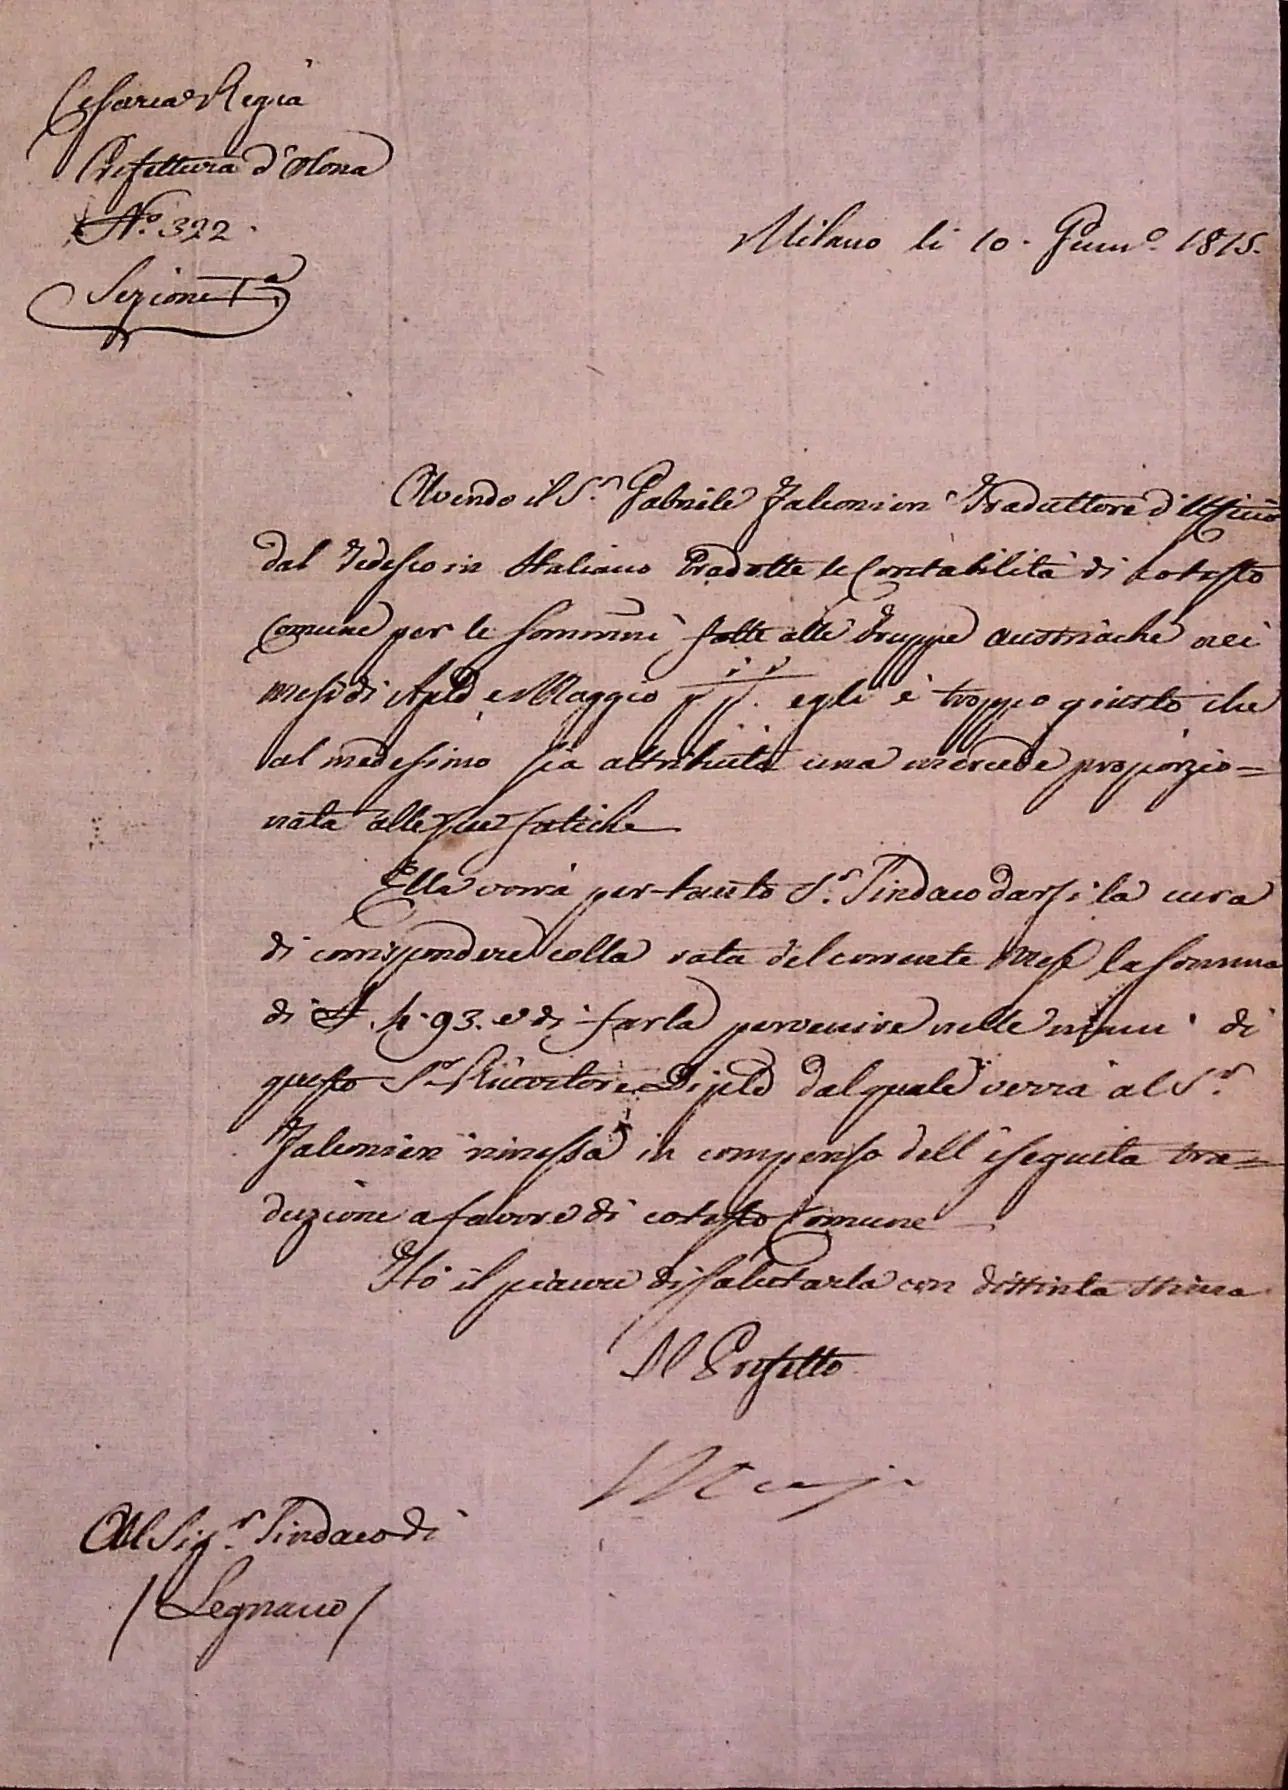 Cesarea Regia
Prefettura d'Olona
N.º 322.
Sezione 1.ª
Milano li 10. Genn.º 1815.
Avendo il S.r Gabriele Falconieri Traduttore d'Ufficio
dal Tedesco in Italiano tradotte le Contabilità di cotesto
Comune per le sommini fatte alle Truppe austriache nei
mesi di Aple e Maggio pp. egli è troppo giusto che
al medesimo sia attribuita una mercede proporzio=
nata alle sue fatiche
Ella vorrà per-tanto S.r Sindaco darsi la cura
di corrispondere colla rata del corrente Mese la somma
di 4.93. e di farla pervenire nelle mani di
questo S.r Ricevitore Diple dal quale verrà al S.r
Falconieri rimessa in compenso dell'eseguita tra=
duzione a favore di cotesto Comune
Hò il piacere di salutarla con distinta stima
Il Prefetto
Al Sig.r Sindaco di
/ Legnano /